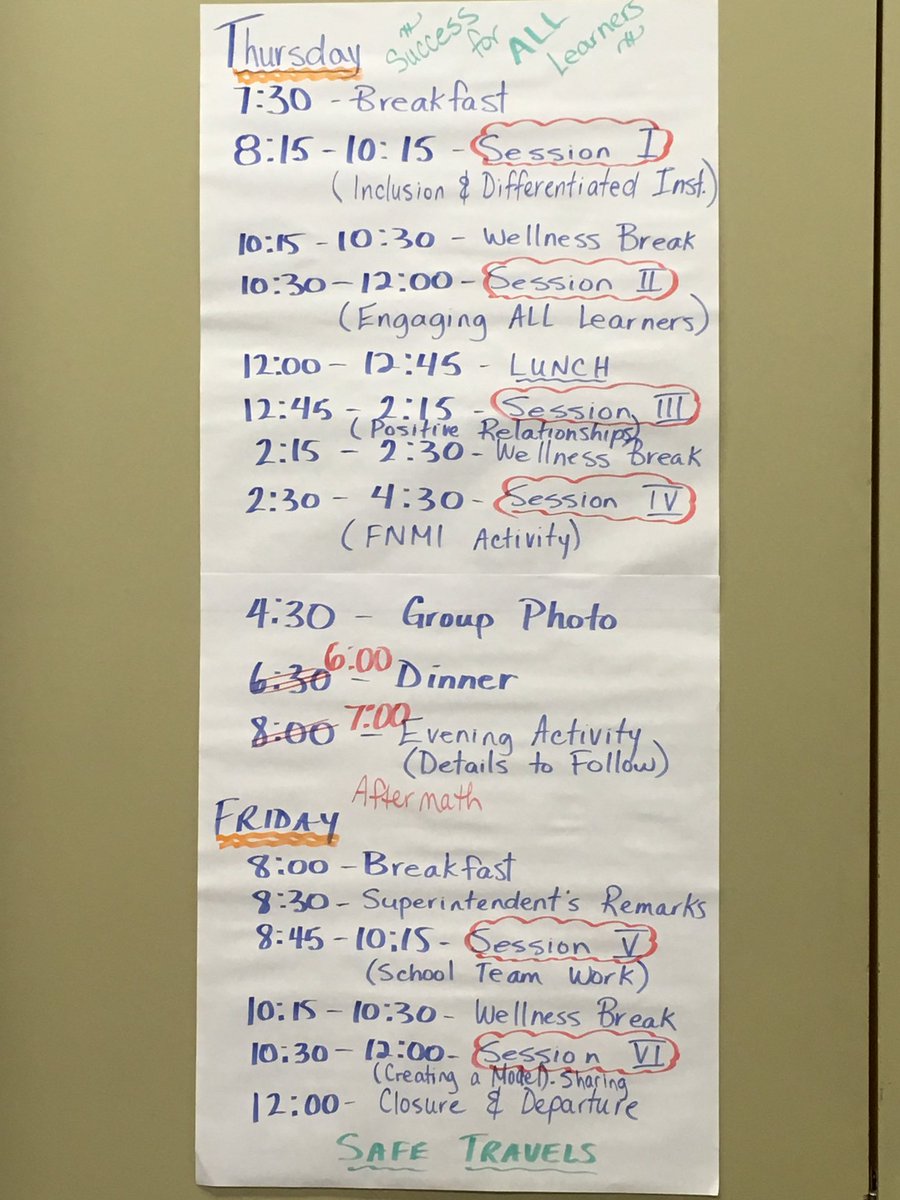 Thursday
Success for ALL Learners
7:30 - Breakfast
8:15 - 10:15 - Session I
(Inclusion & Differentiated Inst.)
10:15 - 10:30 - Wellness Break
10:30 - 12:00 - Session II
(Engaging ALL Learners)
12:00 - 12:45 - LUNCH
12:45 - 2:15 - Session III
(Positive Relationships)
2:15 - 2:30 - Wellness Break
2:30 - 4:30 - Session IV
(FNMI Activity)
4:30 - Group Photo
6:30 6:00 - Dinner
8:00 7:00 - Evening Activity
(Details to Follow)
Aftermath
FRIDAY
8:00 - Breakfast
8:30 - Superintendent's Remarks
8:45 - 10:15 - Session V
(School Team Work)
10:15 - 10:30 - Wellness Break
10:30 - 12:00 - Session VI
(Creating a Model). Sharing
12:00 - Closure & Departure
SAFE TRAVELS